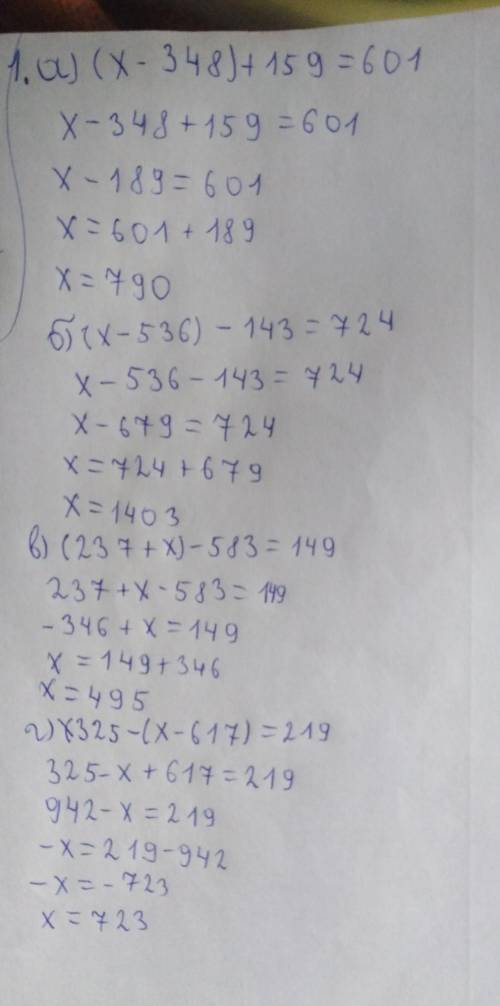 1. а) (x - 348) + 159 = 601
x - 348 + 159 = 601
x - 189 = 601
x = 601 + 189
x = 790
б) (x - 536) - 143 = 724
x - 536 - 143 = 724
x - 679 = 724
x = 724 + 679
x = 1403
в) (237 + x) - 583 = 149
237 + x - 583 = 149
- 346 + x = 149
x = 149 + 346
x = 495
г) 325 - (x - 617) = 219
325 - x + 617 = 219
942 - x = 219
- x = 219 - 942
- x = - 723
x = 723